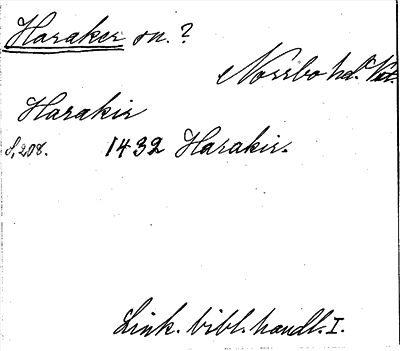 Haraker sn.?
Norrbo hd. Vst.
Harakir
S. 208. 1432 Harakir.
Link. bibl. handl. I.